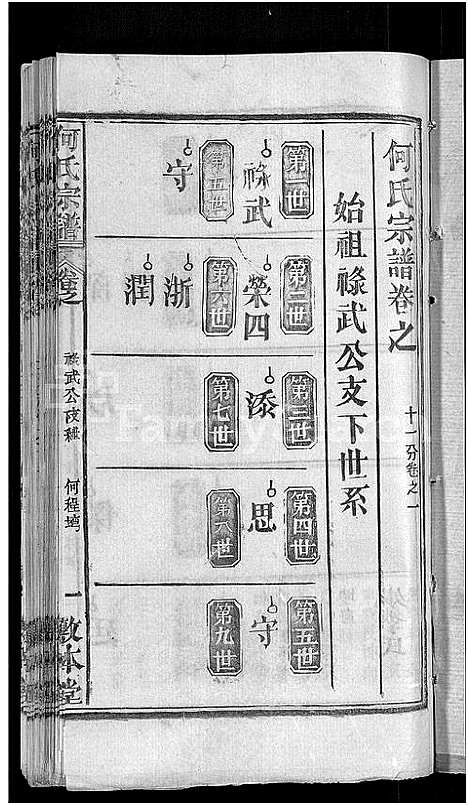 何氏宗譜卷之
十一分卷之一
始祖祿武公支下世系
第一世
祿武
第二世
榮四
第三世
添
第四世
思
第五世
守
第五世
守
第六世
浙
潤
第七世
第八世
第九世
何氏宗譜
卷之
祿武公支下
何程塆
一
敦本堂